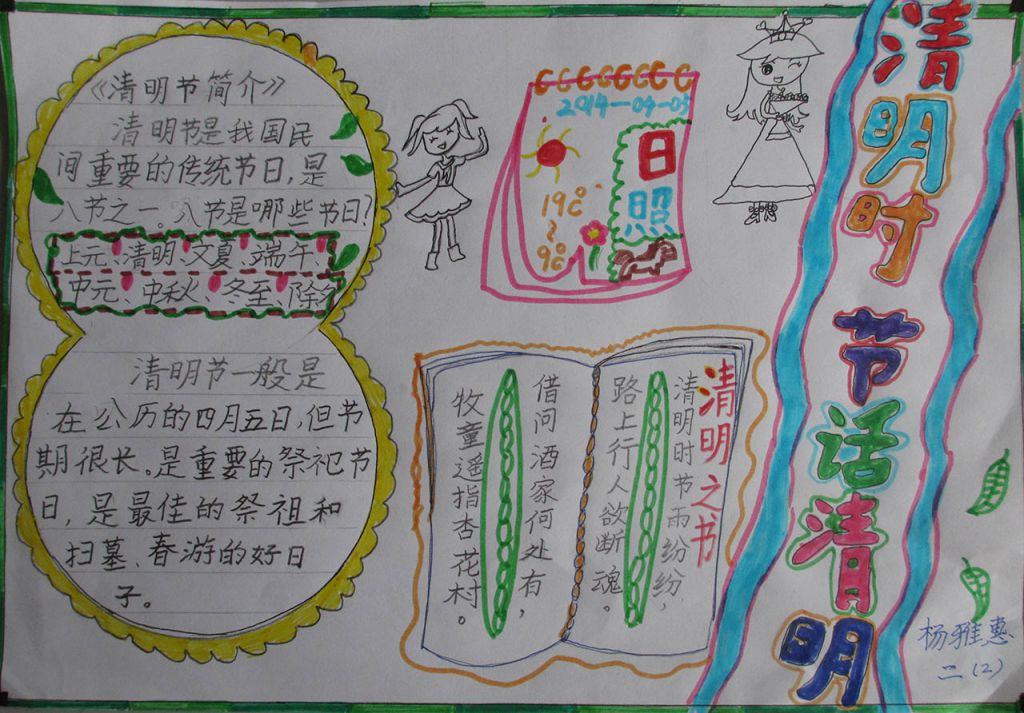 《清明节简介》
清明节是我国民
间重要的传统节日,是
八节之一。八节是哪些节日?
上元、清明、文夏、端午、
中元、中秋、冬至、除夕
清明节一般是
在公历的四月五日,但节
期很长。是重要的祭祀节
日,是最佳的祭祖和
扫墓、春游的好日
子。
2014-04-05
日照
19℃
~
9℃
清明之书
清明时节雨纷纷,
路上行人欲断魂。
借问酒家何处有,
牧童遥指杏花村。
清明时节话清明
杨雅惠
二(2)